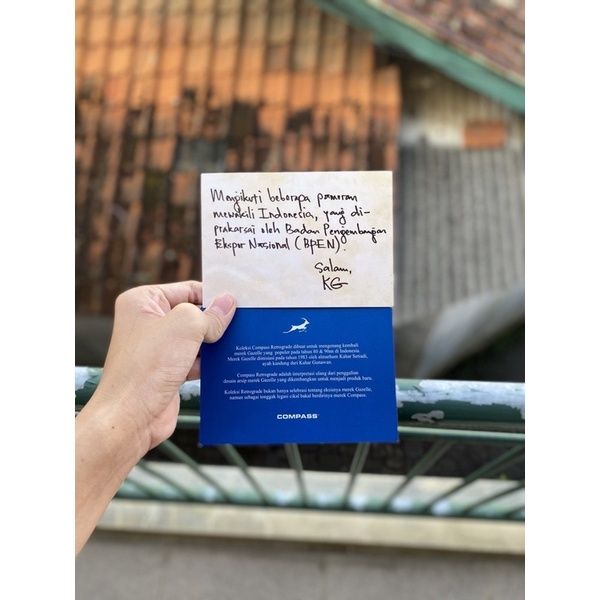 Mengikuti beberapa pameran
mewakili Indonesia, yang di-
prakarsai oleh Badan Pengembangan
Ekspor Nasional (BPEN).
Salam,
KG
Koleksi Compass Retrograde dibuat untuk mengenang kembali
merek Gazelle yang populer pada tahun 80 & 90an di Indonesia.
Merek Gazelle diinisiasi pada tahun 1983 oleh almarhum Kahar Setiadi,
ayah kandung dari Kahar Gunawan.
Compass Retrograde adalah interpretasi ulang dari penggalian
desain arsip merek Gazelle yang dikembangkan untuk menjadi produk baru.
Koleksi Retrograde bukan hanya selebrasi tentang eksisnya merek Gazelle,
namun sebagai tonggak legasi cikal bakal berdirinya merek Compass.
COMPASS